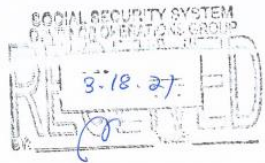 SOCIAL SECURITY SYSTEM
OPERATIONS GROUP
RECEIVED
3.18.21
BY: